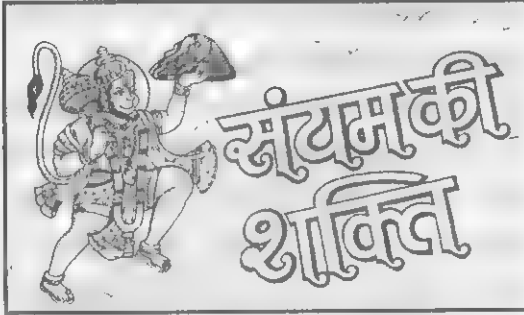 संयम की
शक्ति